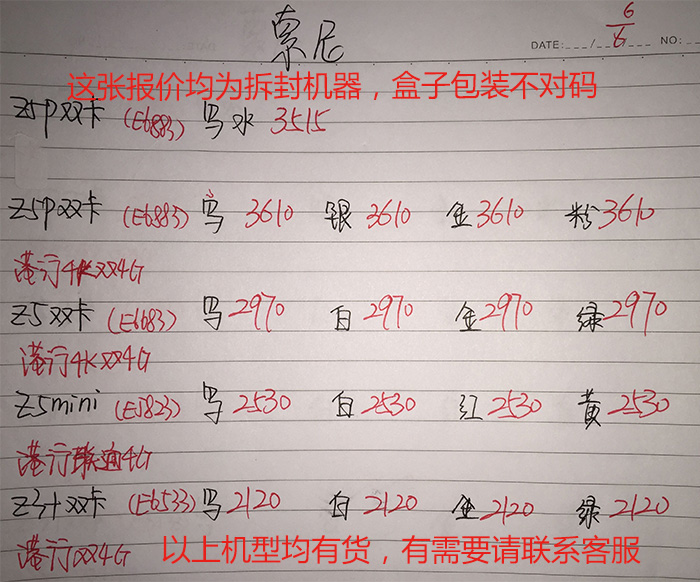 索尼
6/6
DATE: / / NO:
这张报价均为拆封机器，盒子包装不对码
Z5P双卡 (E6883) 乌水 3515
Z5P双卡 (E6883) 乌 3610 银 3610 金 3610 粉 3610
港行4K双4G
Z5双卡 (E6683) 乌 2970 白 2970 金 2970 绿 2970
港行4K双4G
Z5mini (E5823) 乌 2530 白 2530 红 2530 黄 2530
港行联通4G
Z3+双卡 (E6533) 乌 2120 白 2120 金 2120 绿 2120
港行双4G
以上机型均有货，有需要请联系客服